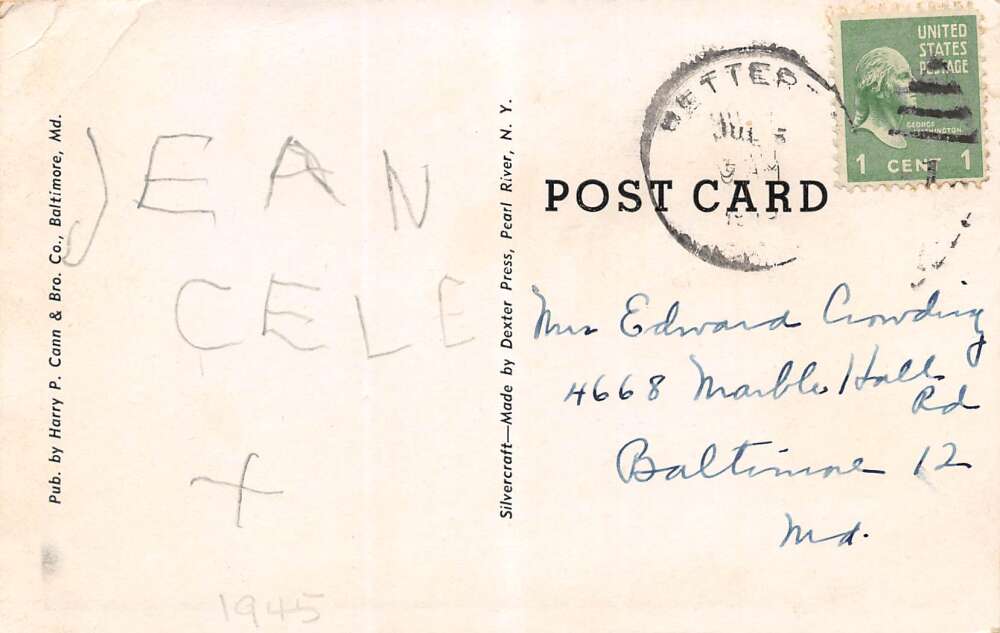 Pub. by Harry P. Cann & Bro. Co., Baltimore, Md.
JEAN
CELE
+
1945
Silvercraft—Made by Dexter Press, Pearl River, N. Y.
BETTER
JUL
UNITED
STATES
POSTAGE
GEORGE
WASHINGTON
1 CENT 1
POST CARD
Mrs Edward Crowding
4668 Marble Hall
Rd
Baltimore 12
Md.